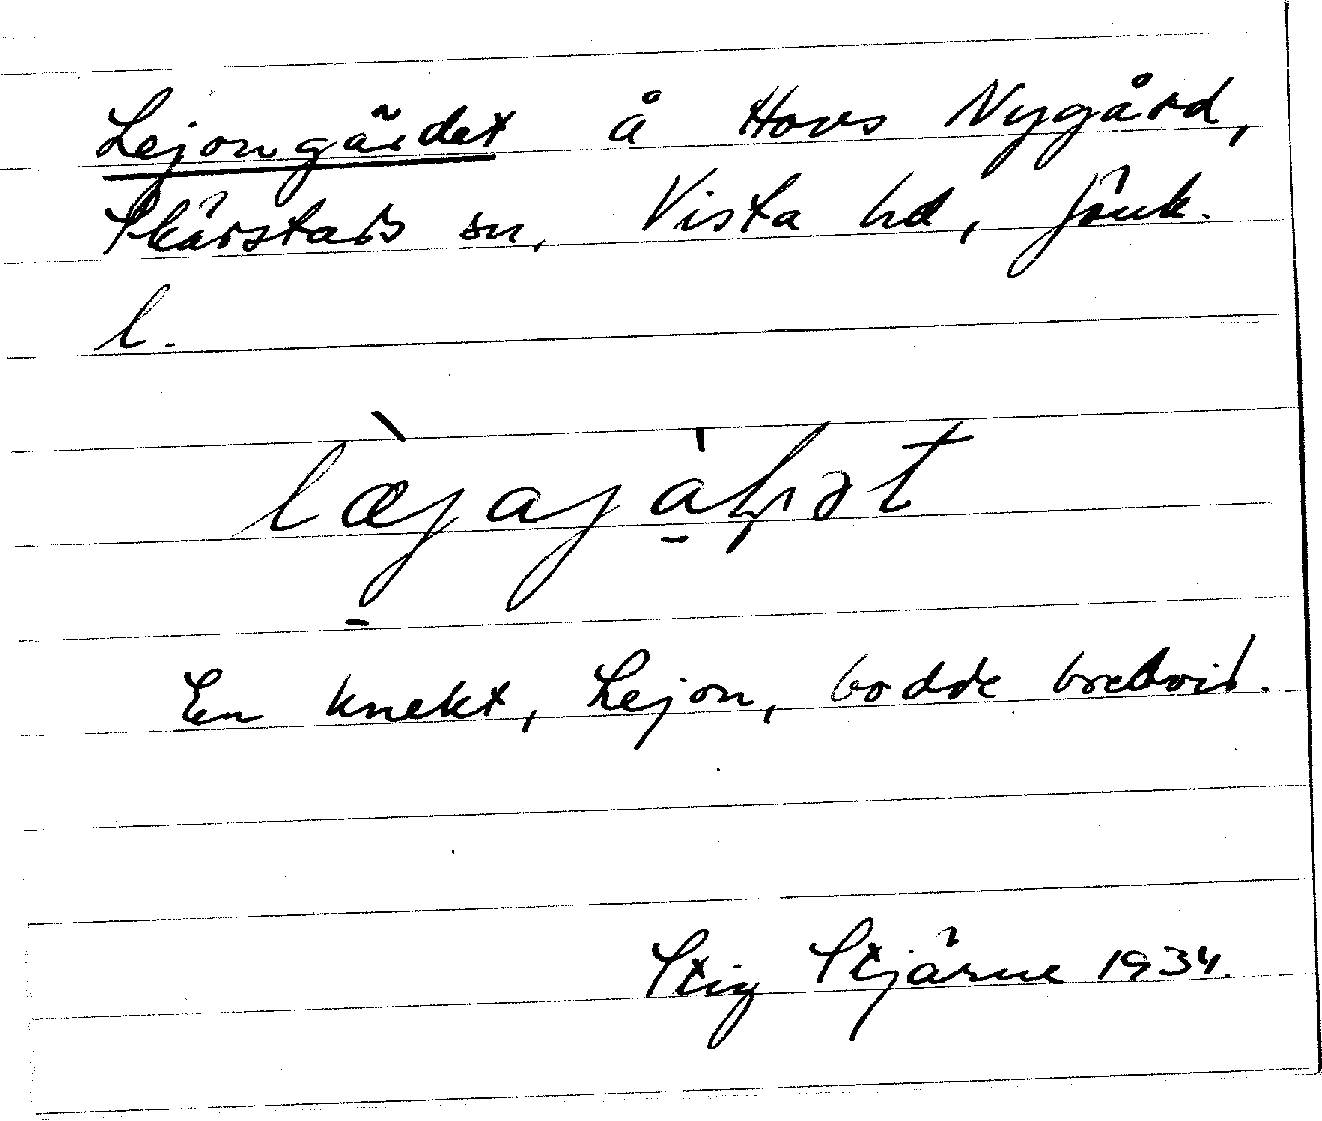 Lejongärdet å Hovs Nygård,
Skärstads sn, Vista hd, Jönk.
l.
En knekt, Lejon, bodde bredvid.
Stig Stjärne 1934.